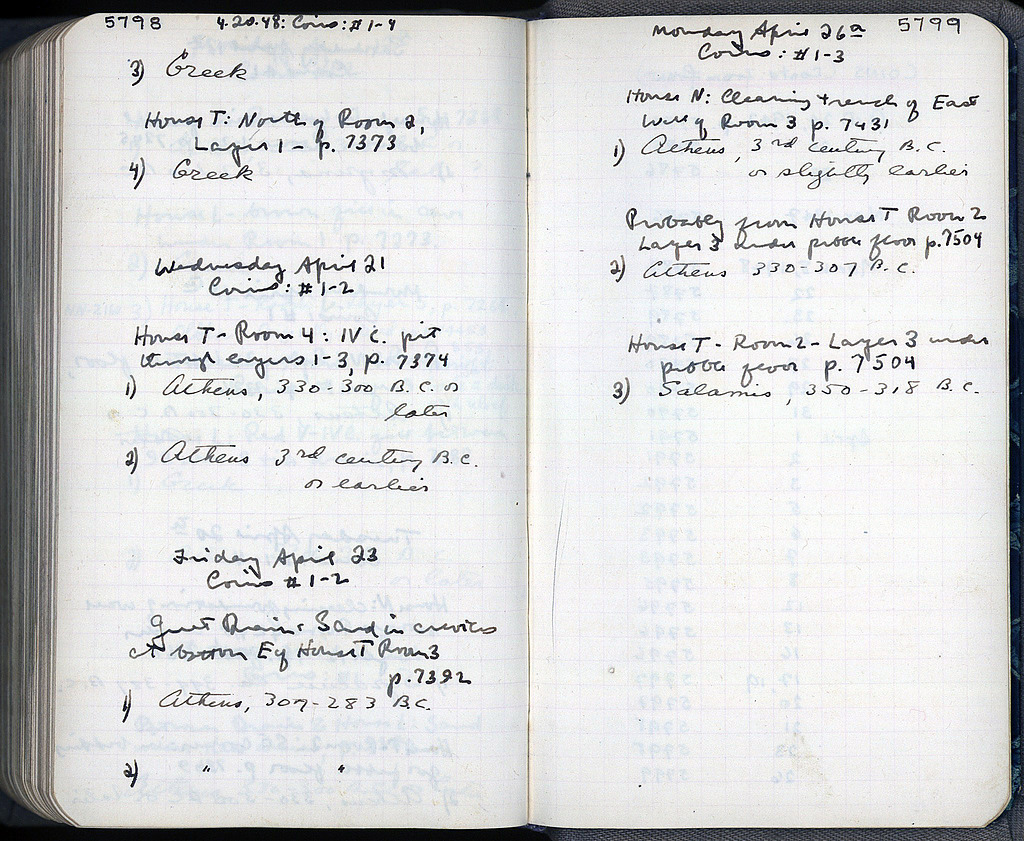 5798
4.20.48: Coins: #1-4
3) Greek
House T: North of Room 2,
Layer 1 - p. 7373
4) Greek
Wednesday April 21
Coins: #1-2
House T - Room 4: IV c. pit
through layers 1-3, p. 7374
1) Athens, 330-300 B.C. or
later
2) Athens 3rd century B.C.
or earlier
Friday April 23
Coins #1-2
Great Drain: Sand in crevices
at bottom E of House T Room 3
p. 7392
1) Athens, 307-283 B.C.
2) " "
5799
Monday April 26
Coins: #1-3
House N: Cleaning trench of East
Wall of Room 3 p. 7431
1) Athens, 3rd century B.C.
or slightly earlier
Probably from House T Room 2
Layer 3 under floor p. 7504
2) Athens 330-307 B.C.
House T - Room 2 - Layer 3 under
floor p. 7504
3) Salamis, 350-318 B.C.